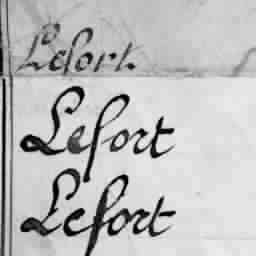 Lefort.
Lefort
Lefort